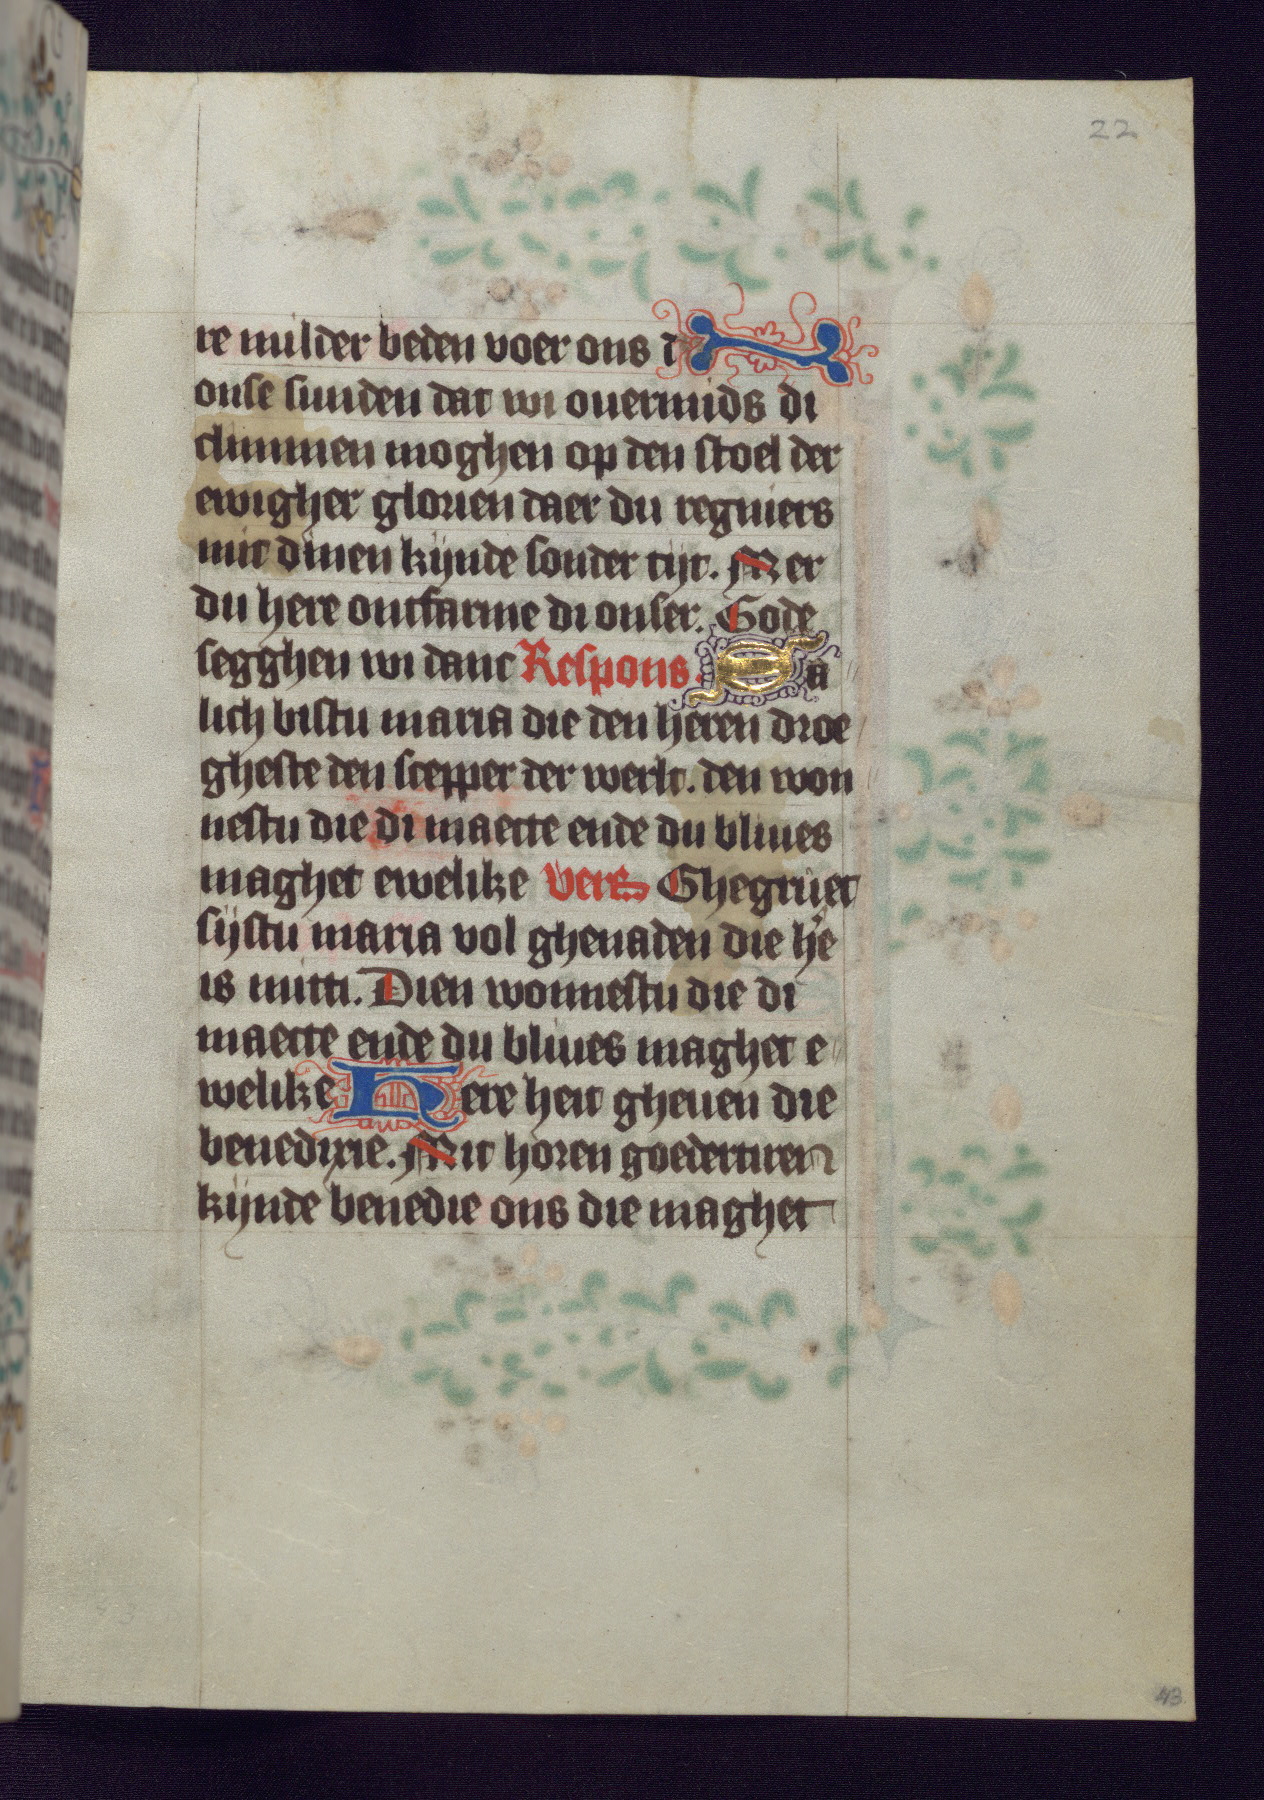 22
re milder beden voer ons t
onse sunden dat wi ouermids di
climmen moghen op den stoel der
ewigher glorien daer du regniers
mit dinen kijnde sonder tijt. Mer
du here ontfarme di onser. Gode
segghen wi danc Respons. Sa
lich bistu maria die den heren droe
gheste den scepper der werlt. den won
nestu die di maecte ende du bliues
maghet ewelike vers Ghegruet
sijstu maria vol ghenaden die h'e
is mitti. Dien wonnestu die di
maecte ende du bliues maghet e
welike Here heit gheuen die
benedixie. Mit horen goedertiren
kijnde benedie ons die maghet
43